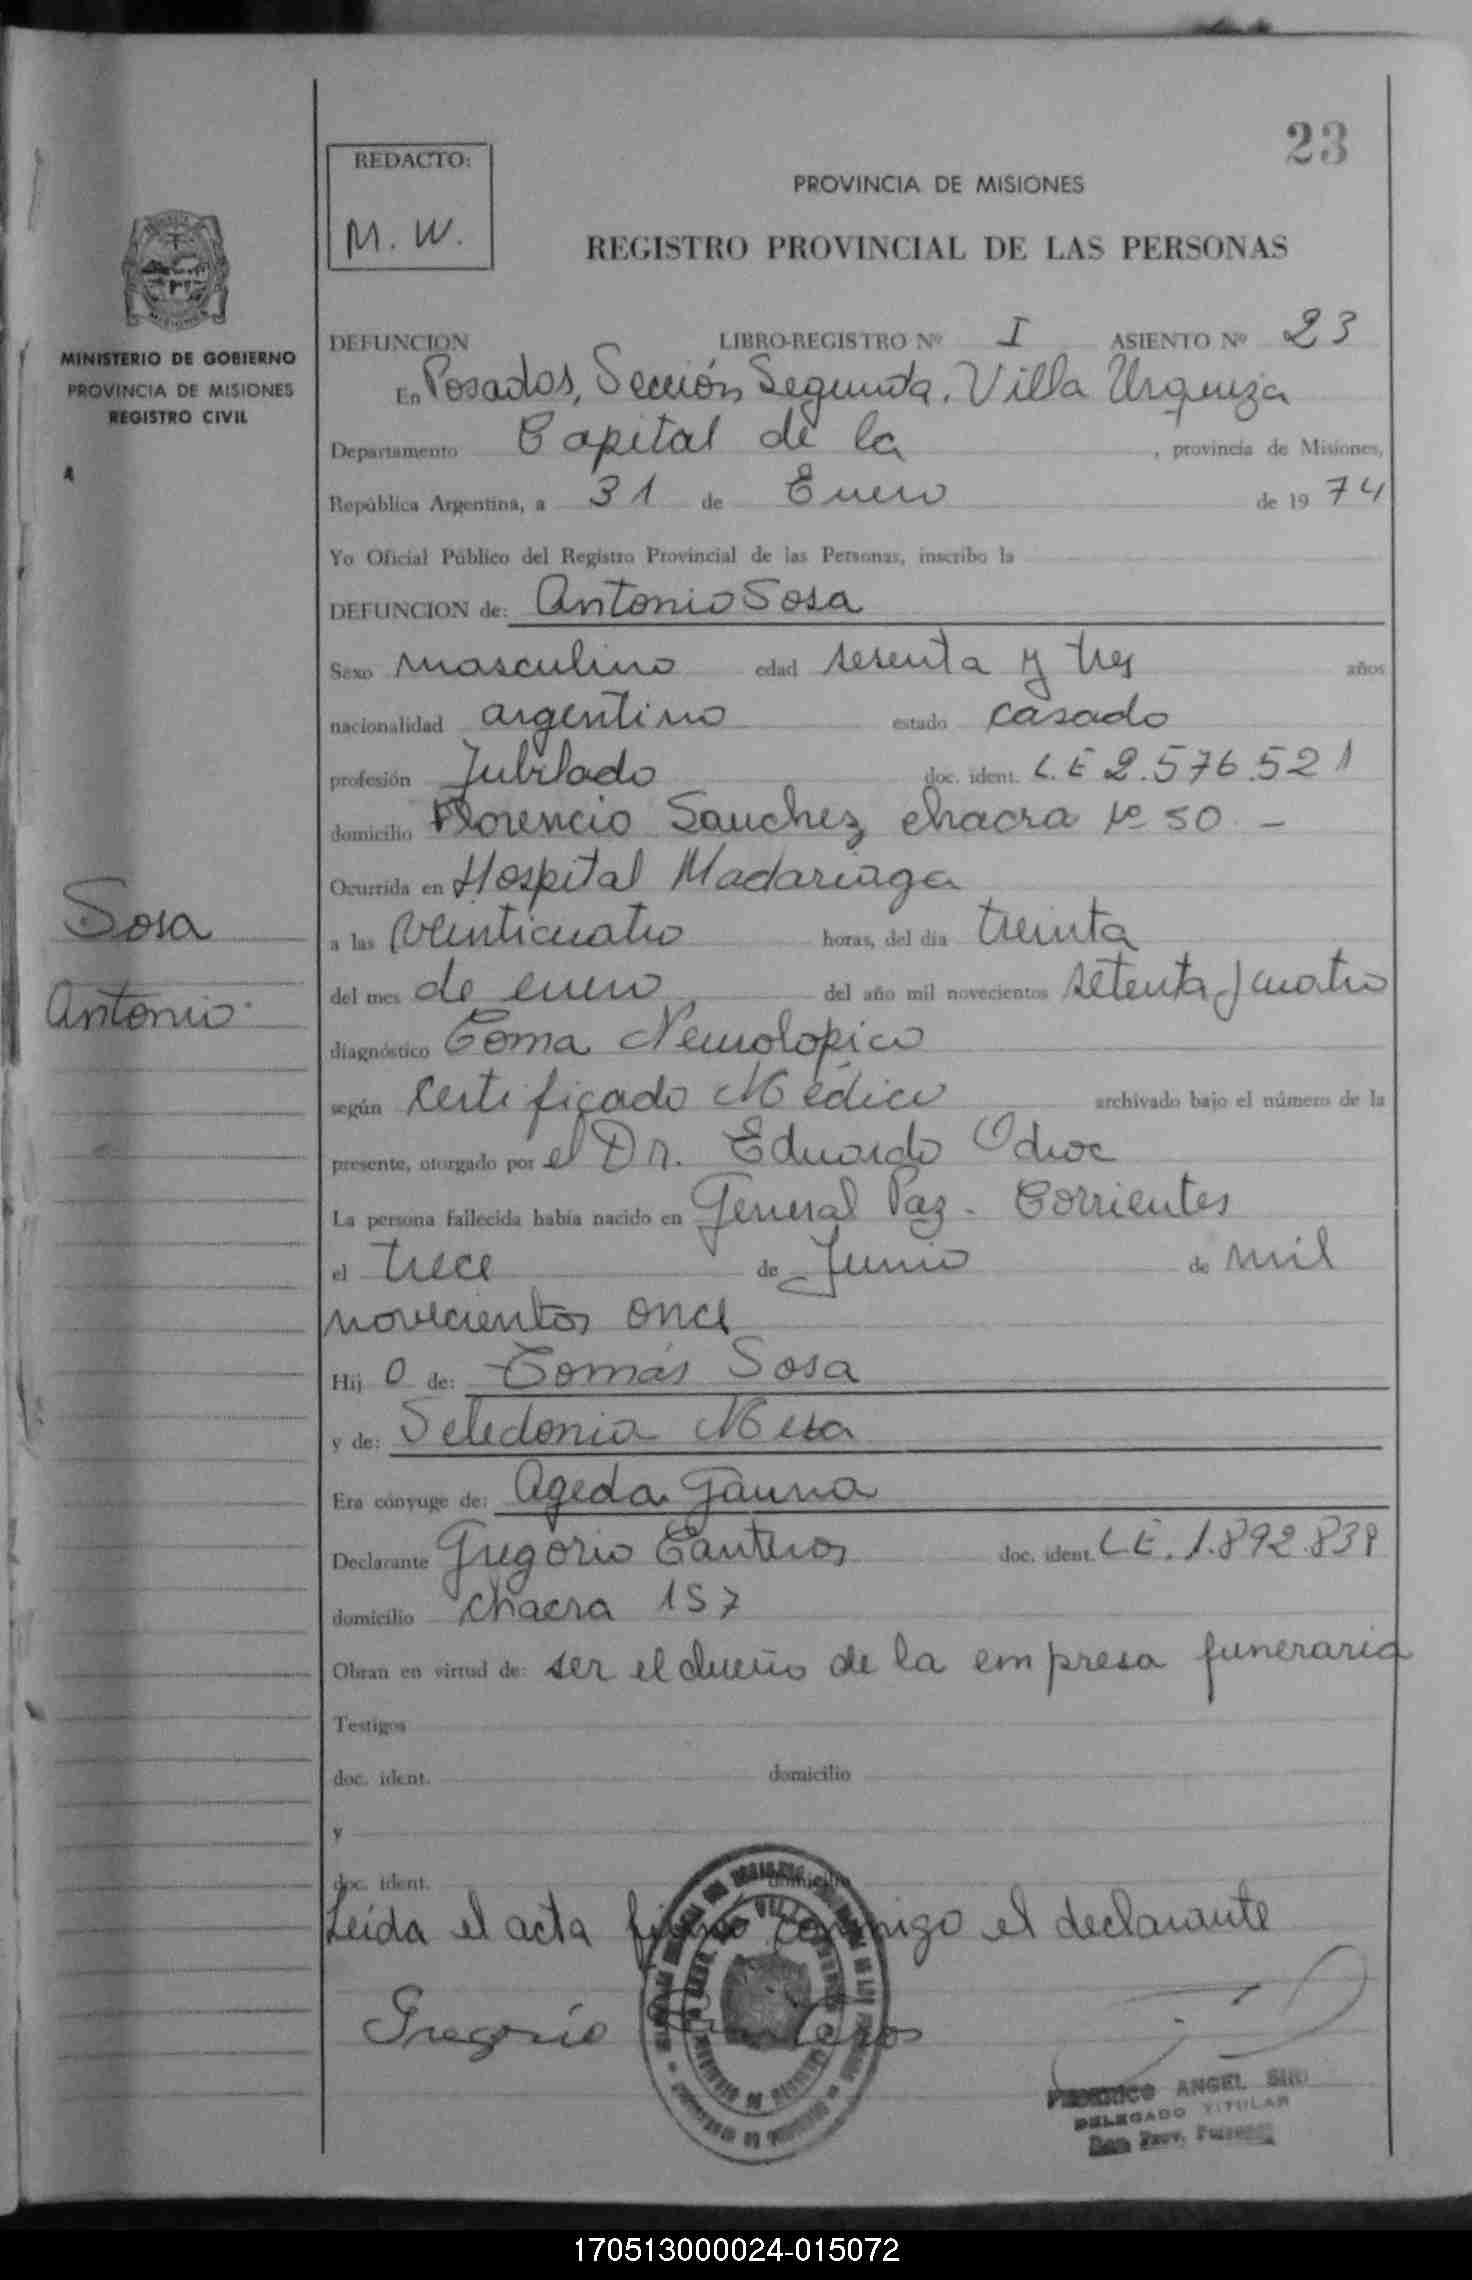 23
REDACTO:
M. W.
PROVINCIA DE MISIONES
REGISTRO PROVINCIAL DE LAS PERSONAS
MINISTERIO DE GOBIERNO
PROVINCIA DE MISIONES
REGISTRO CIVIL
A
DEFUNCION LIBRO-REGISTRO Nº I ASIENTO Nº 23
En Posadas, Sección Segunda. Villa Urquiza
Departamento Capital de la , provincia de Misiones,
República Argentina, a 31 de Enero de 1974
Yo Oficial Público del Registro Provincial de las Personas, inscribo la
DEFUNCION de: Antonio Sosa
Sexo masculino edad sesenta y tres años
nacionalidad argentino estado casado
profesión Jubilado doc. ident. L.E 2.576.521
domicilio Florencio Sanchez, chacra Nº 50 -
Ocurrida en Hospital Madariaga
a las veinticuatro horas, del día treinta
del mes de enero del año mil novecientos setenta y cuatro
diagnóstico Coma Neurologico
según certificado Médico archivado bajo el número de la
presente, otorgado por el Dr. Eduardo
La persona fallecida había nacido en General Paz - Corrientes
el trece de Junio de mil
novecientos once
Hij o de: Tomás Sosa
y de: Seledonia Mesa
Era cónyuge de: Ageda Gauna
Declarante Gregorio Canteros doc. ident. L.E. 1.892.839
domicilio chacra 157
Obran en virtud de: ser el dueño de la empresa funeraria
Testigos
doc. ident. domicilio
y
doc. ident. domicilio
Leída el acta firmó conmigo el declarante
Gregorio Canteros
Sosa
Antonio
ANGEL
DELEGADO TITULAR
170513000024-015072